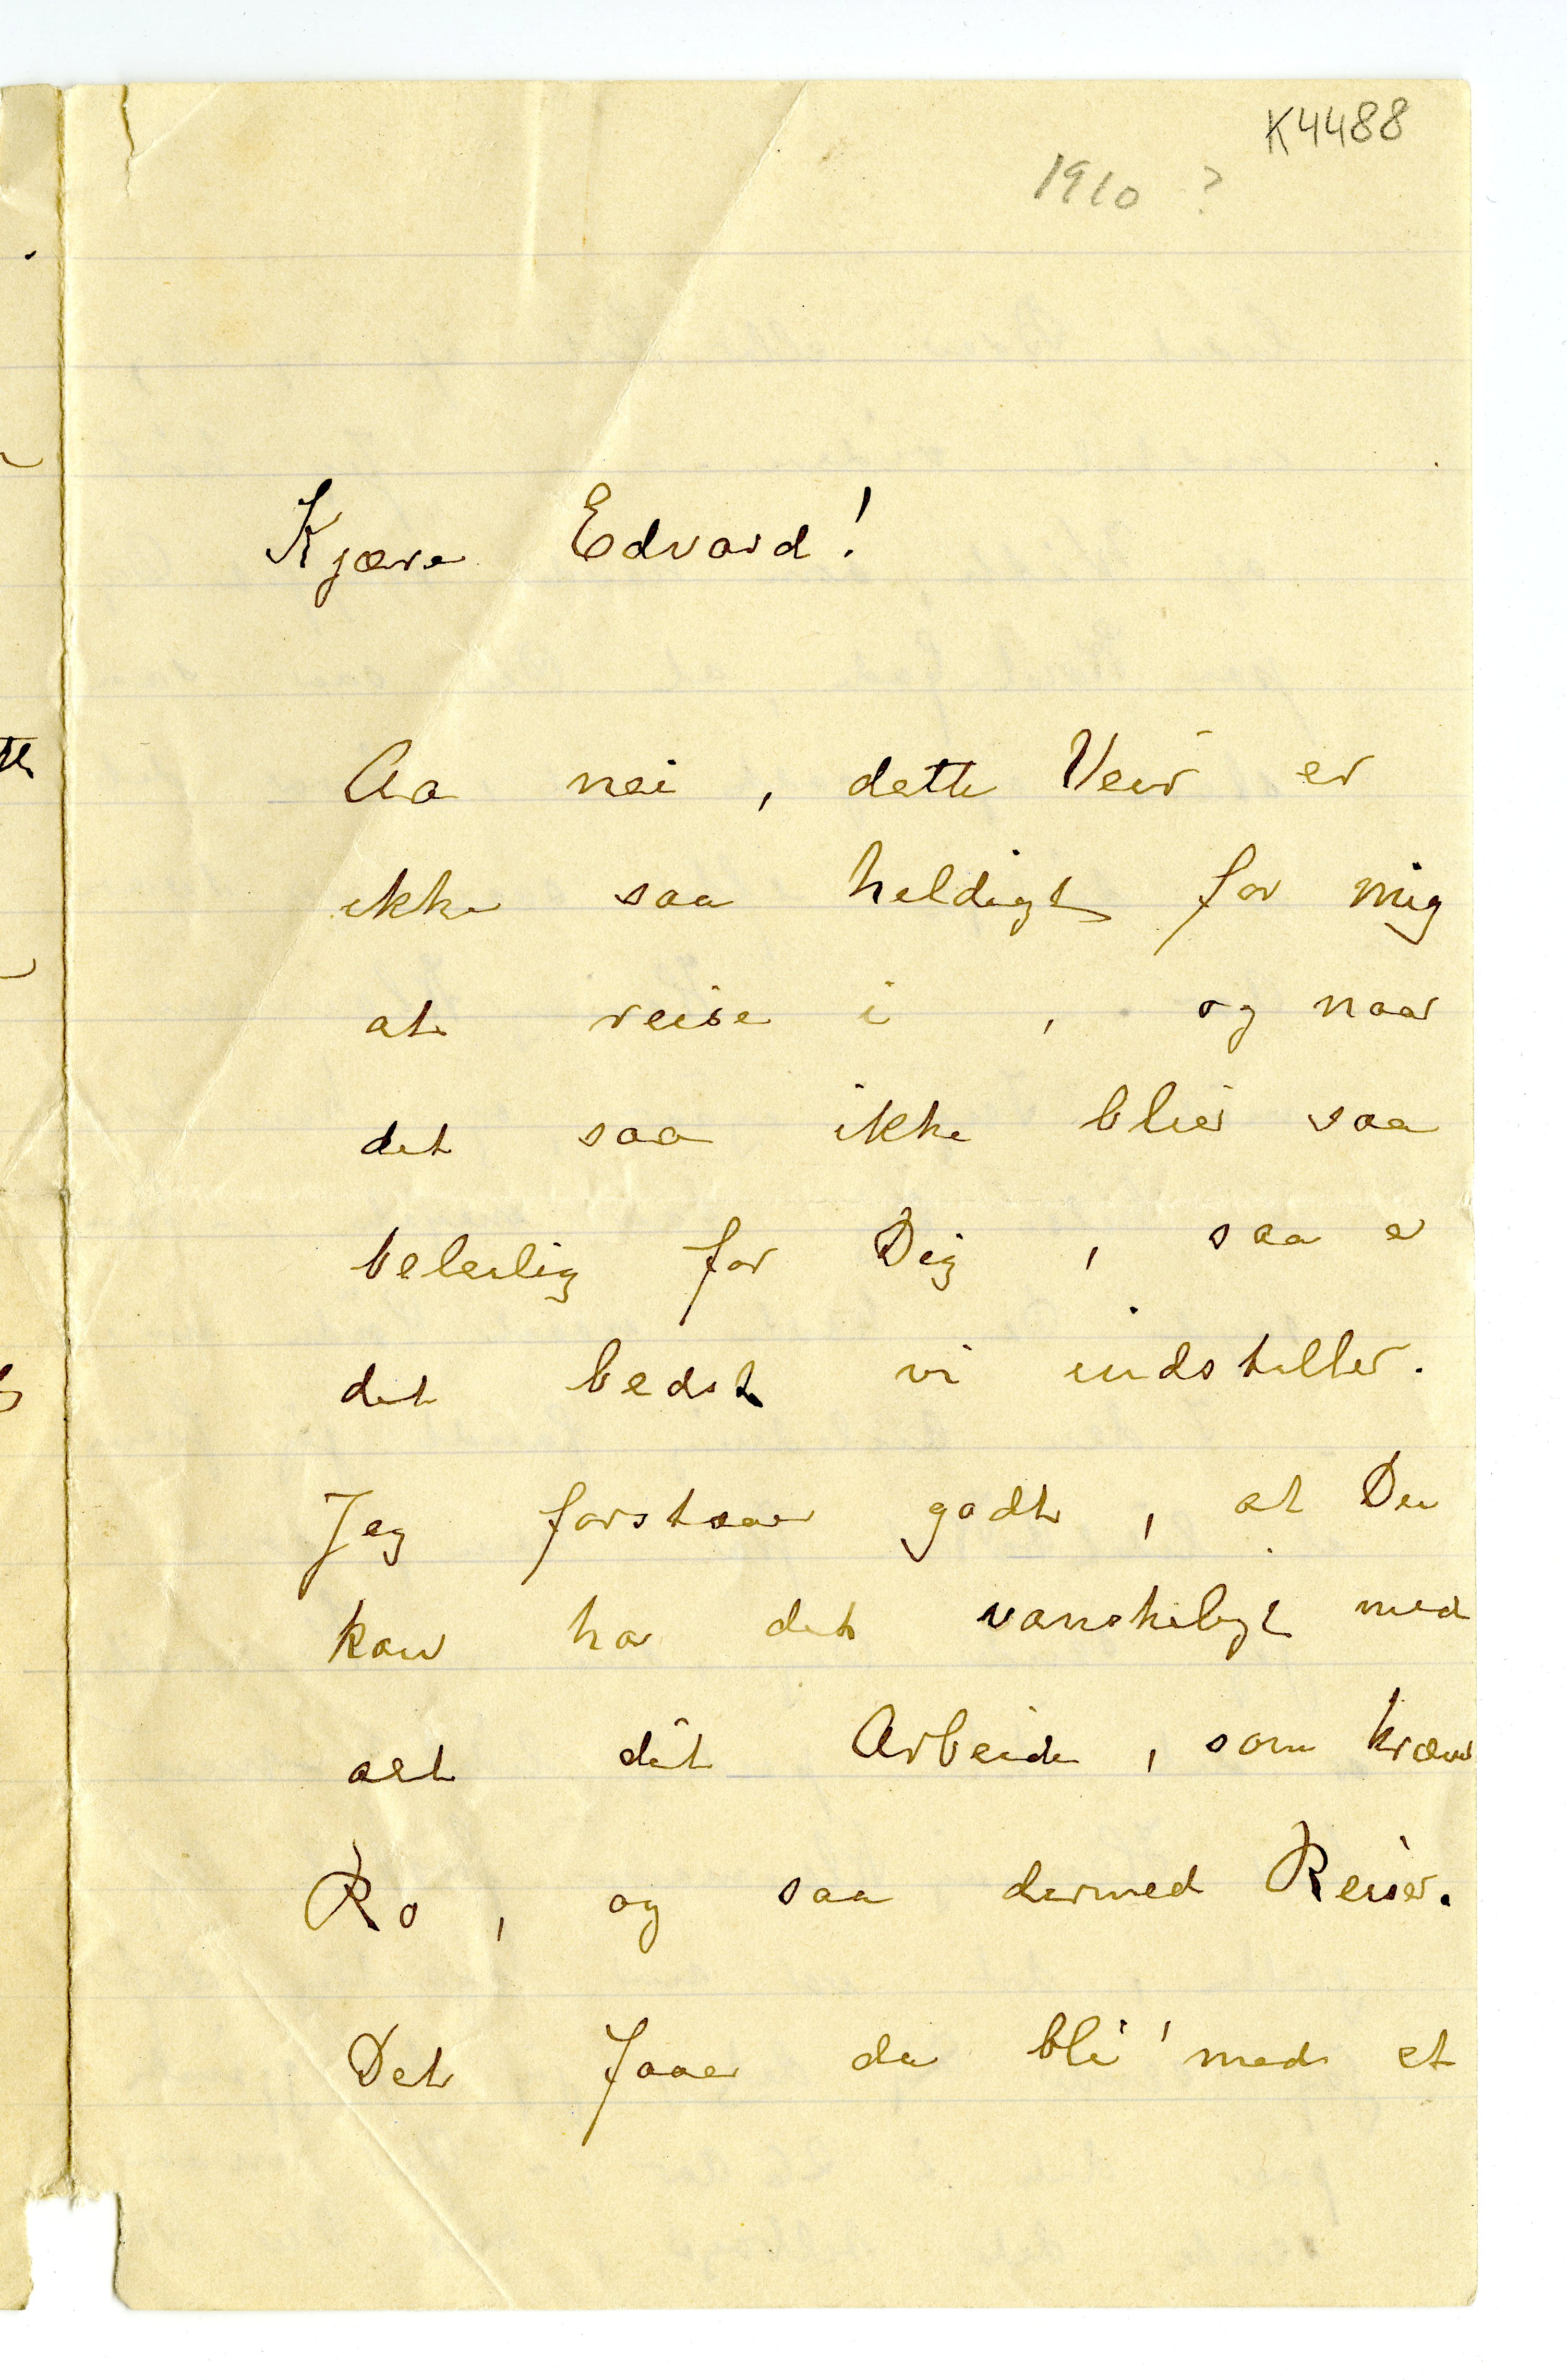 K4488
1910 ?
Kjære Edvard!
Aa nei, dette Veir er
ikke saa heldigt for mig
at reise i, og naar
det saa ikke blir saa
beleilig for Dig, saa er
det bedst vi indstiller.
Jeg forstaar godt, at Du
kan ha det vanskeligt med
alt dit Arbeide, som kræver
Ro, og saa dermed Reiser.
Det faar da bli' med et